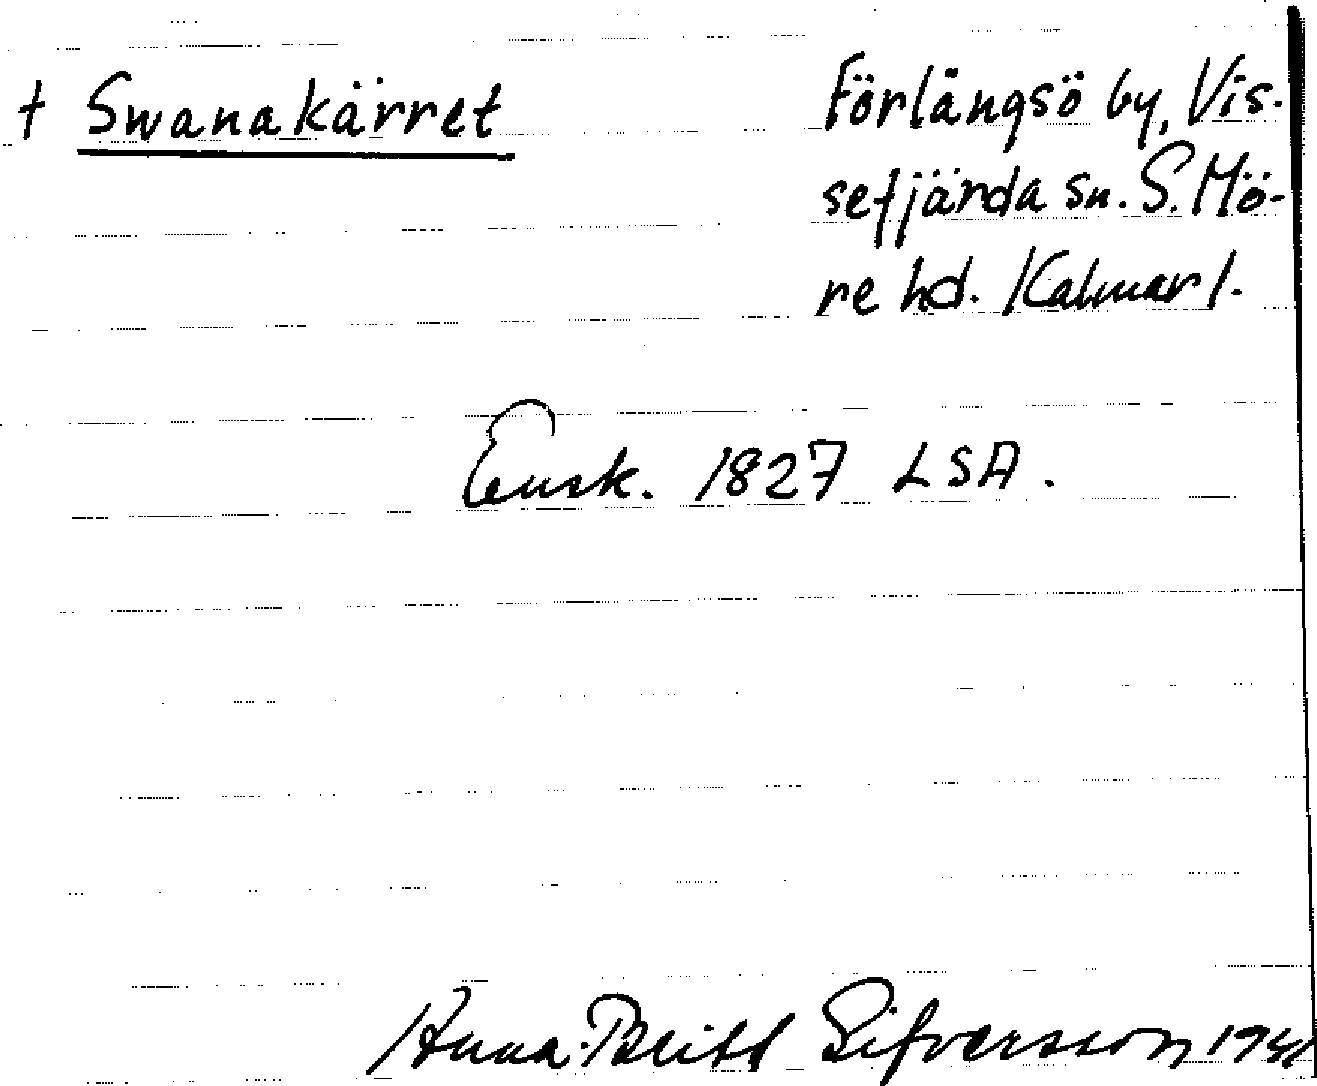 † Swanakärret
Förlångsö by, Vis-
sefjärda sn. S. Mö-
re hd. Kalmar l.
Ensk. 1827 LSA.
Anna-Britt Sifversson